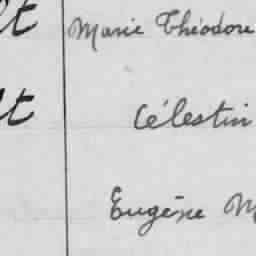 lt Marie Théodore
lt Célestin
Eugène M